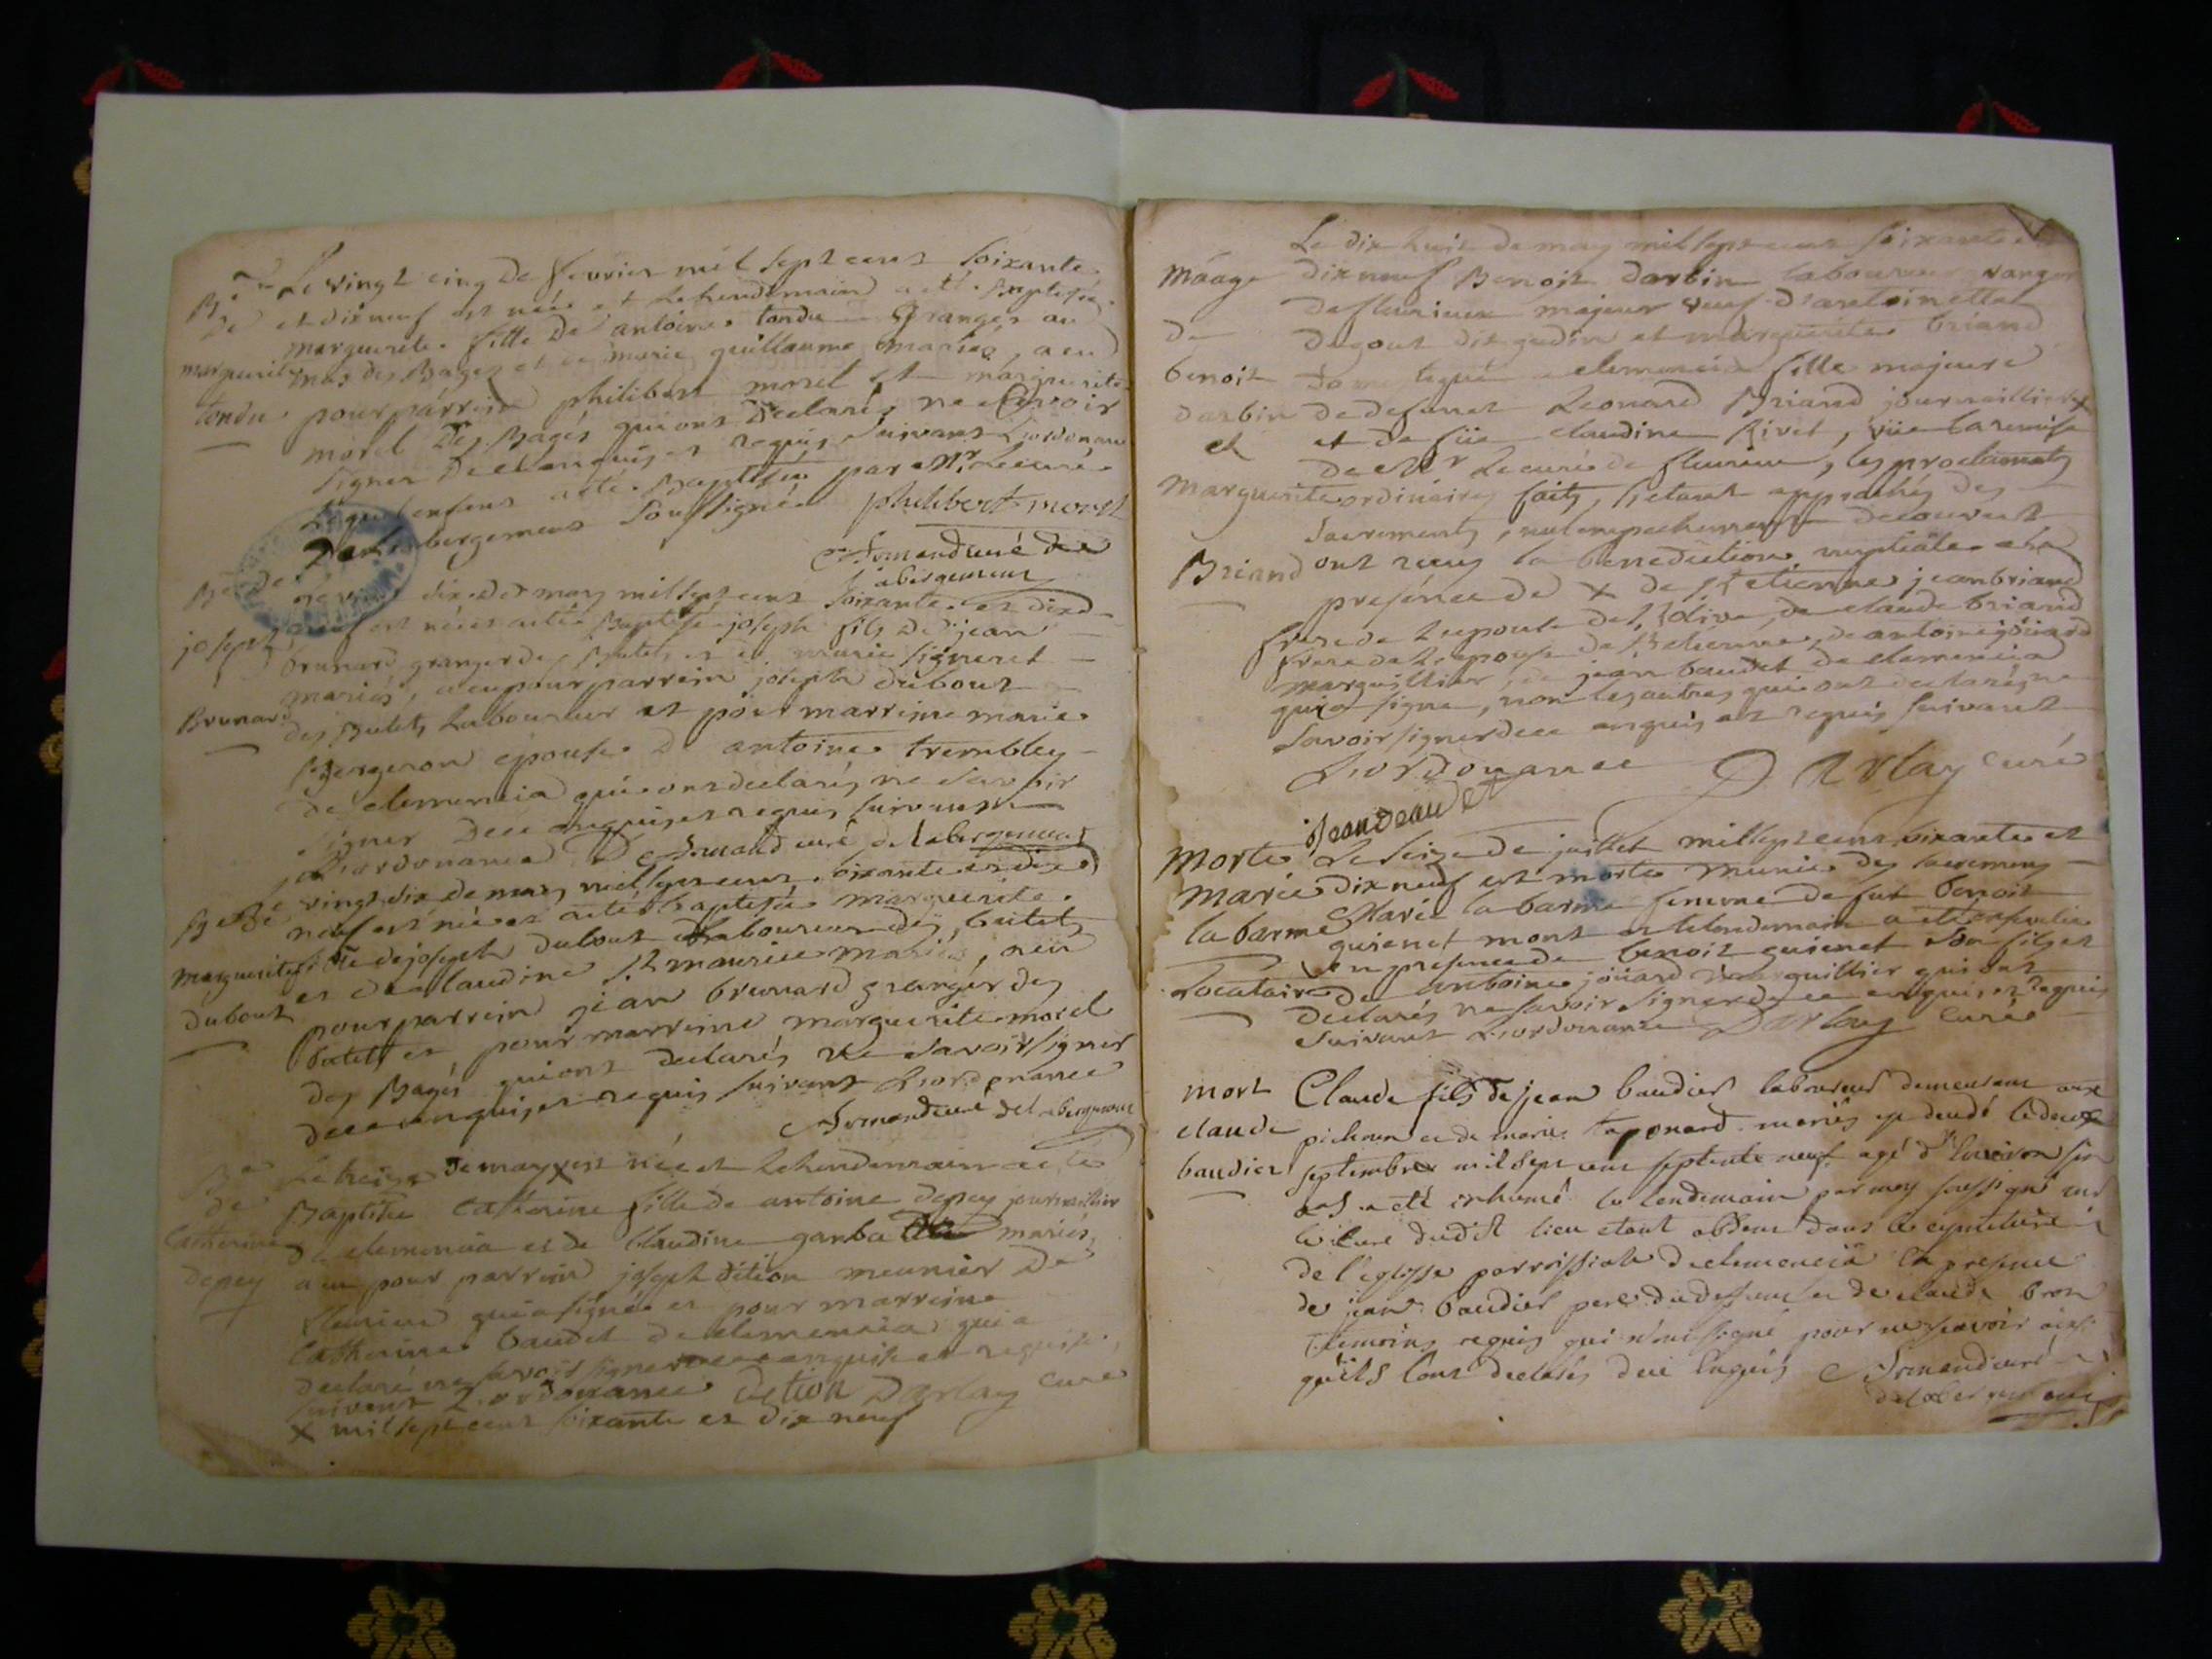 Le vingt cinq de fevrier mil sept cent soixante
Bê et dix neuf est née et Lehendemain a eté Baptisée
De marguerite fille De antoine tondu Granger au
marguerite mas des Bages et de marie guillaume mariés, a eu
tondu pour parrein philibert morel et marguerite
morel Des Bagés qui ont Declarés ne sçavoir
signer De ce enquis et requis suivant L'ordonance
Lequel enfant a eté Baptisée par Mr Le curé
De Labergement soussigné philibert morel
Armand curé de
Labergement
Bê de dix De may mil sept cent soixante et dix
joseph neuf est né et a eté Baptisé joseph fils De jean
brunard granger des Butets et de marie signeret
mariés, a eu pour parrein joseph dubout
Brunard des Butets Laboureur et pour marreine marie
Bergeron epouse D antoine trembley
de clemencia qui ont declarés ne savoir
signer De ce enquis et requis suivant
L'ordonance Armand curé de Labergement
Bê De vingt dix de may mil sept cent soixante et dix
neuf est née et a eté baptisée marguerite
marguerite fille de joseph dubout laboureur des butets
dubout et de claudine st maurice mariés, a eu
pour parrein jean brunard granger des
butets et pour marreine marguerite morel
des Bagés qui ont declarés ne savoir signer
de ce enquis et requis suivant L'ordonance
Armand curé de Labergement
Bê Le treize de may x est née et Lehendemain a eté
de Baptisée Catherine fille de antoine depey journaillier
Catherine de clemencia et de Claudine gamba mariés,
depey a eu pour parrein joseph détion meunier De
fleurieux qui a signé et pour marreine
Catherine baudet de clemencia qui a
declaré ne savoir signer de ce enquise et requise,
suivant L'ordonance Detion Darlay Curé
x mil sept cent soixante et dix neuf
Le dix huit de may mil sept cent soixante et
máage dix neuf Benoit darbin laboureur
de fleurieux majeur veuf d'antoinette
De dugout et marguerite briand
benoit domestique a clemencia fille majeure
darbin de defunct Leonard Briand journaillier
et et de claudine Rivet, vüe la remise
de Mr Le curé de fleurieux, les proclamats
Marguerite ordinaires faits, s'etant approchés des
sacrements, nul empechement decouvert
Briand ont reçus la benediction nuptiale en
presence de x de st etienne jean briand
frere de L'epouse de st olive, de claude briand
frere de L'epouse de st etienne, de antoine joüard
marguillier, de jean baudet de clemencia
qui a signe, non les autres qui ont declarés ne
savoir signer de ce enquis et requis suivant
L'ordonance Darlay curé
jean baudet
morte Le seize de juillet mil sept cent soixante et
marie dix neuf est morte munie des sacrements
la barme Marie la barme femme de fut benoit
guienet mort et lelendemain a eté ensevelie
en presence de benoit guienet son fils et
Locataire De antoine joüard marguillier qui ont
declarés ne savoir signer de ce enquis et requis
suivant L'ordonance Darlay Curé
mort Claude fils de jean baudier laboureur demeurant aux
claude pichoux et de marie taponard mariés est decedé le deux
baudier septembre mil sept cent septente neuf agé d'environ six
ans a eté inhumé le lendemain par moy soussigné
le curé dudit lieu etant absent dans le cymetiere
de l'eglisse parroissiale de clemencia en presence
de jean baudier pere du defunt et de claude bron
temoins requis qui n'ont signé pour ne scavoir ainsi
qu'ils l'ont declarés de ce enquis Armand curé
de Labergement